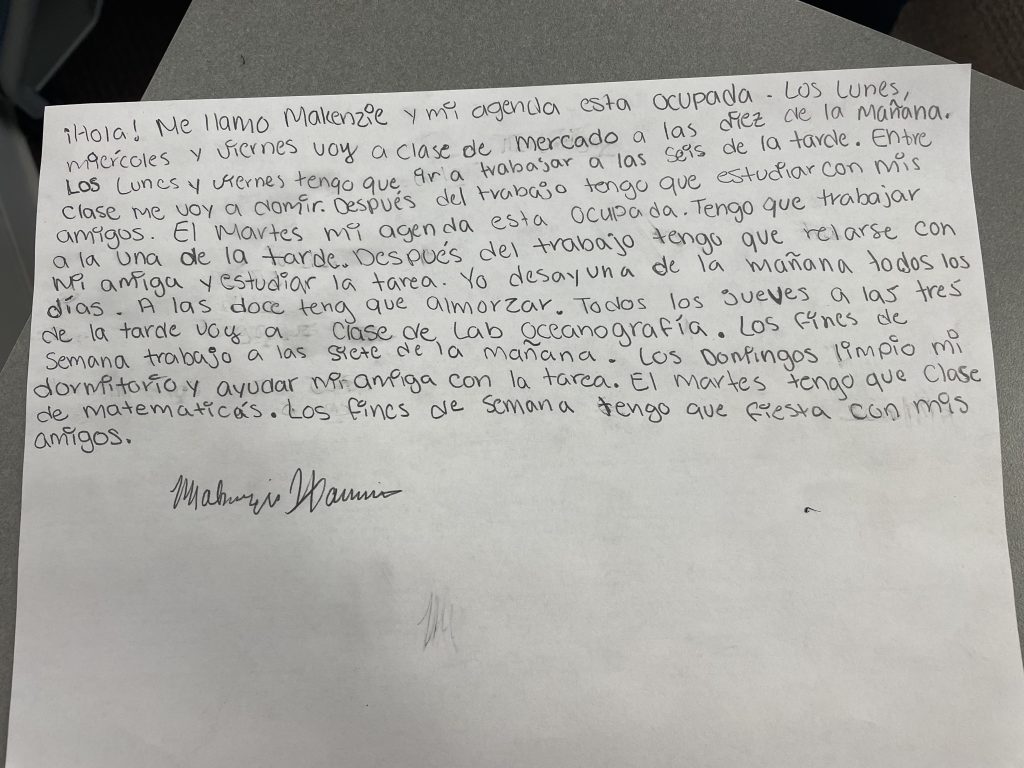 ¡Hola! Me llamo Makenzie y mi agenda esta ocupada. Los Lunes,
miercoles y viernes voy a clase de mercado a las diez de la Mañana.
Los Lunes y viernes tengo que ir a trabajar a las seis de la tarde. Entre
clase me voy a domir. Después del trabajo tengo que estudiar con mis
amigos. El Martes mi agenda esta ocupada. Tengo que trabajar
a la una de la tarde. Después del trabajo tengo que relarse con
mi amiga y estudiar la tarea. Yo desayuna de la mañana todos los
días. A las doce teng que almorzar. Todos los jueves a las tres
de la tarde voy a clase de Lab Oceanografía. Los fines de
Semana trabajo a las siete de la mañana. Los Domingos limpio mi
dormitorio y ayudar mi amiga con la tarea. El Martes tengo que clase
de matematicás. Los fines de semana tengo que fiesta con mis
amigos.